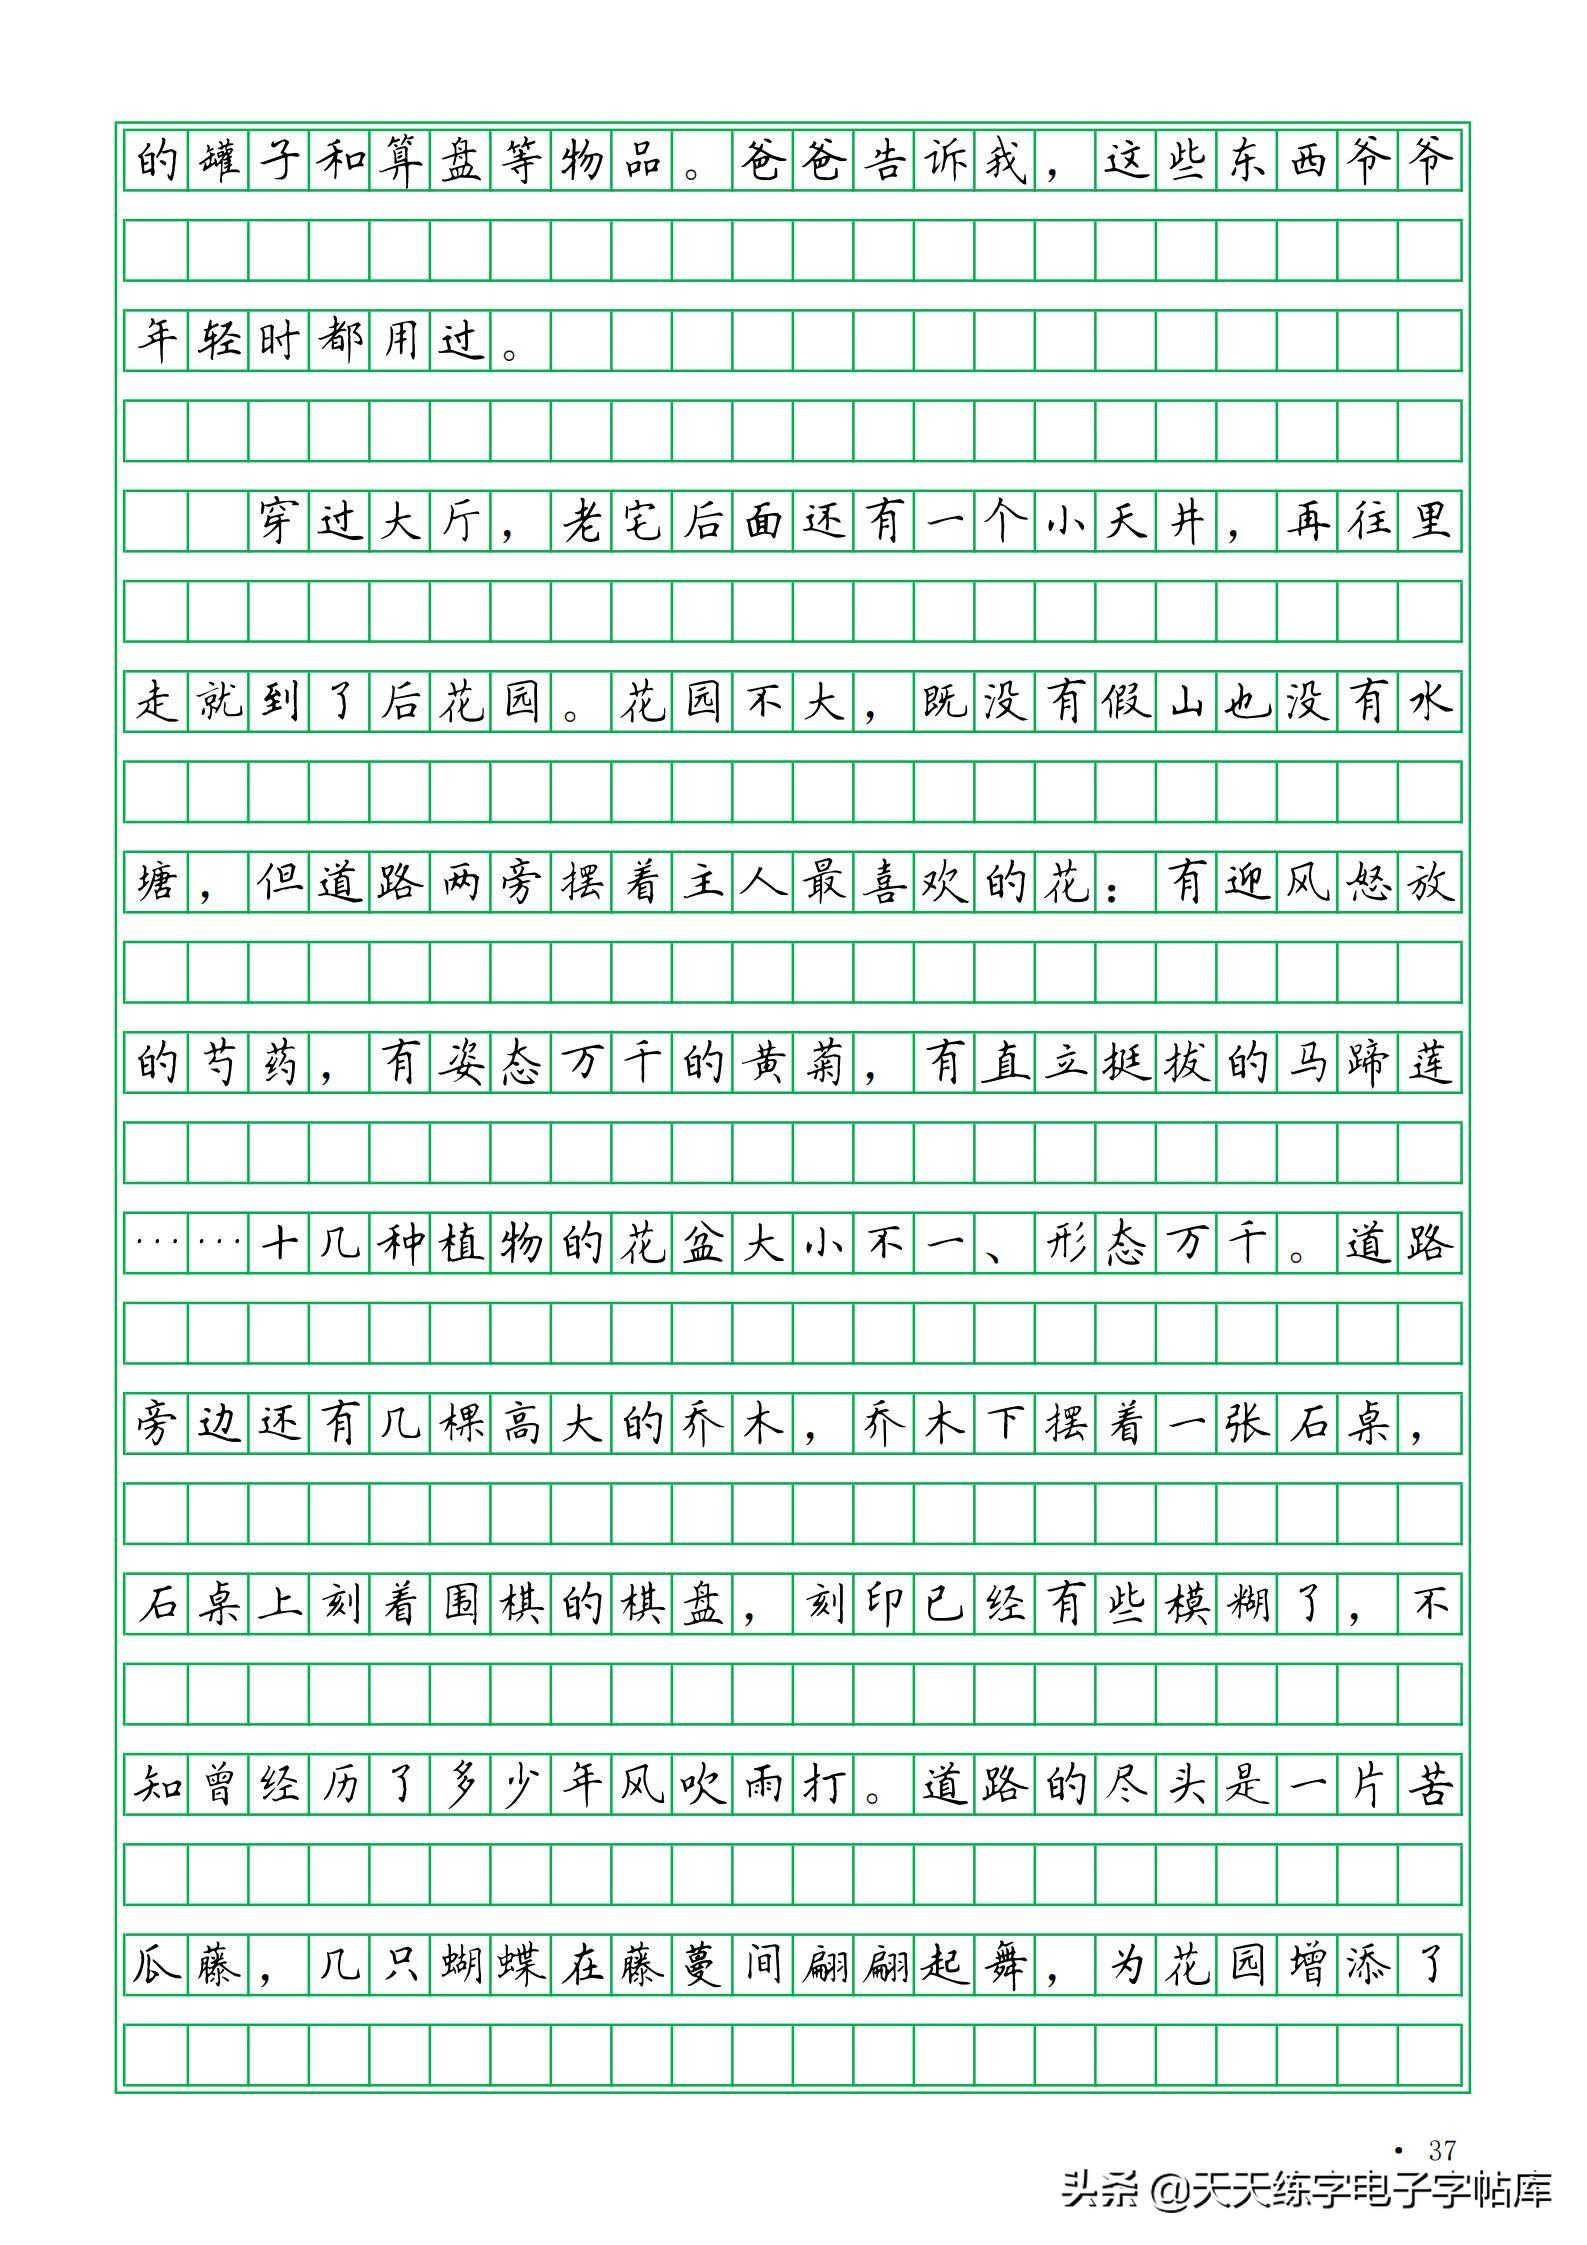 的罐子和算盘等物品。爸爸告诉我，这些东西爷爷
年轻时都用过。
穿过大厅，老宅后面还有一个小天井，再往里
走就到了后花园。花园不大，既没有假山也没有水
塘，但道路两旁摆着主人最喜欢的花：有迎风怒放
的芍药，有姿态万千的黄菊，有直立挺拔的马蹄莲
……十几种植物的花盆大小不一、形态万千。道路
旁边还有几棵高大的乔木，乔木下摆着一张石桌，
石桌上刻着围棋的棋盘，刻印已经有些模糊了，不
知曾经历了多少年风吹雨打。道路的尽头是一片苦
瓜藤，几只蝴蝶在藤蔓间翩翩起舞，为花园增添了
· 37
头条 @天天练字电子字帖库